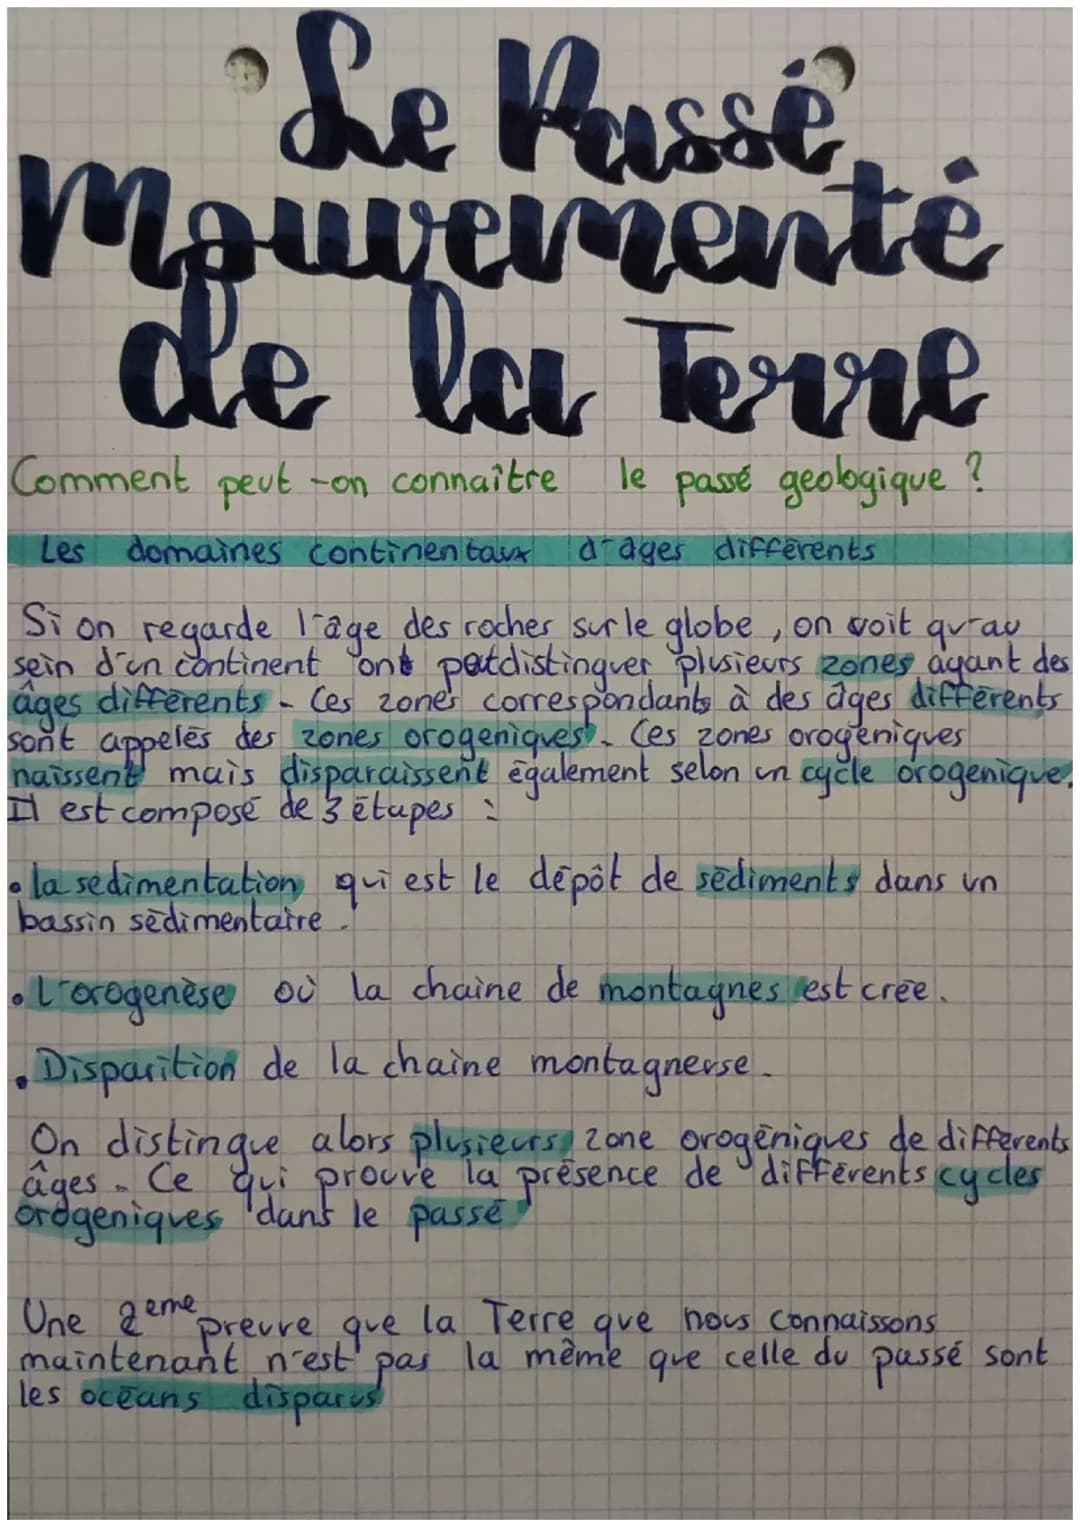 Le Passé
Mouvementé
de la Terre
Comment peut-on connaître le passé geologique ?
Les domaines continentaux d'ages différents
Si on regarde l'âge des roches sur le globe, on voit qu'au
sein d'un continent ont peut distinguer plusieurs zones ayant des
âges différents. Ces zones correspondants à des âges différents
sont appelés des zones orogeniques. Ces zones orogéniques
naissent mais disparaissent également selon un cycle orogenique.
Il est composé de 3 étapes :
• la sedimentation qui est le dépôt de sédiments dans un
bassin sédimentaire.
• L'orogenèse où la chaine de montagnes est crée.
• Disparition de la chaîne montagneuse.
On distingue alors plusieurs zone orogéniques de différents
âges. Ce qui prouve la présence de différents cycles
orogeniques dans le passé
Une 2eme preuve que la Terre que nous connaissons
maintenant n'est pas la même que celle du passé sont
les océans disparus